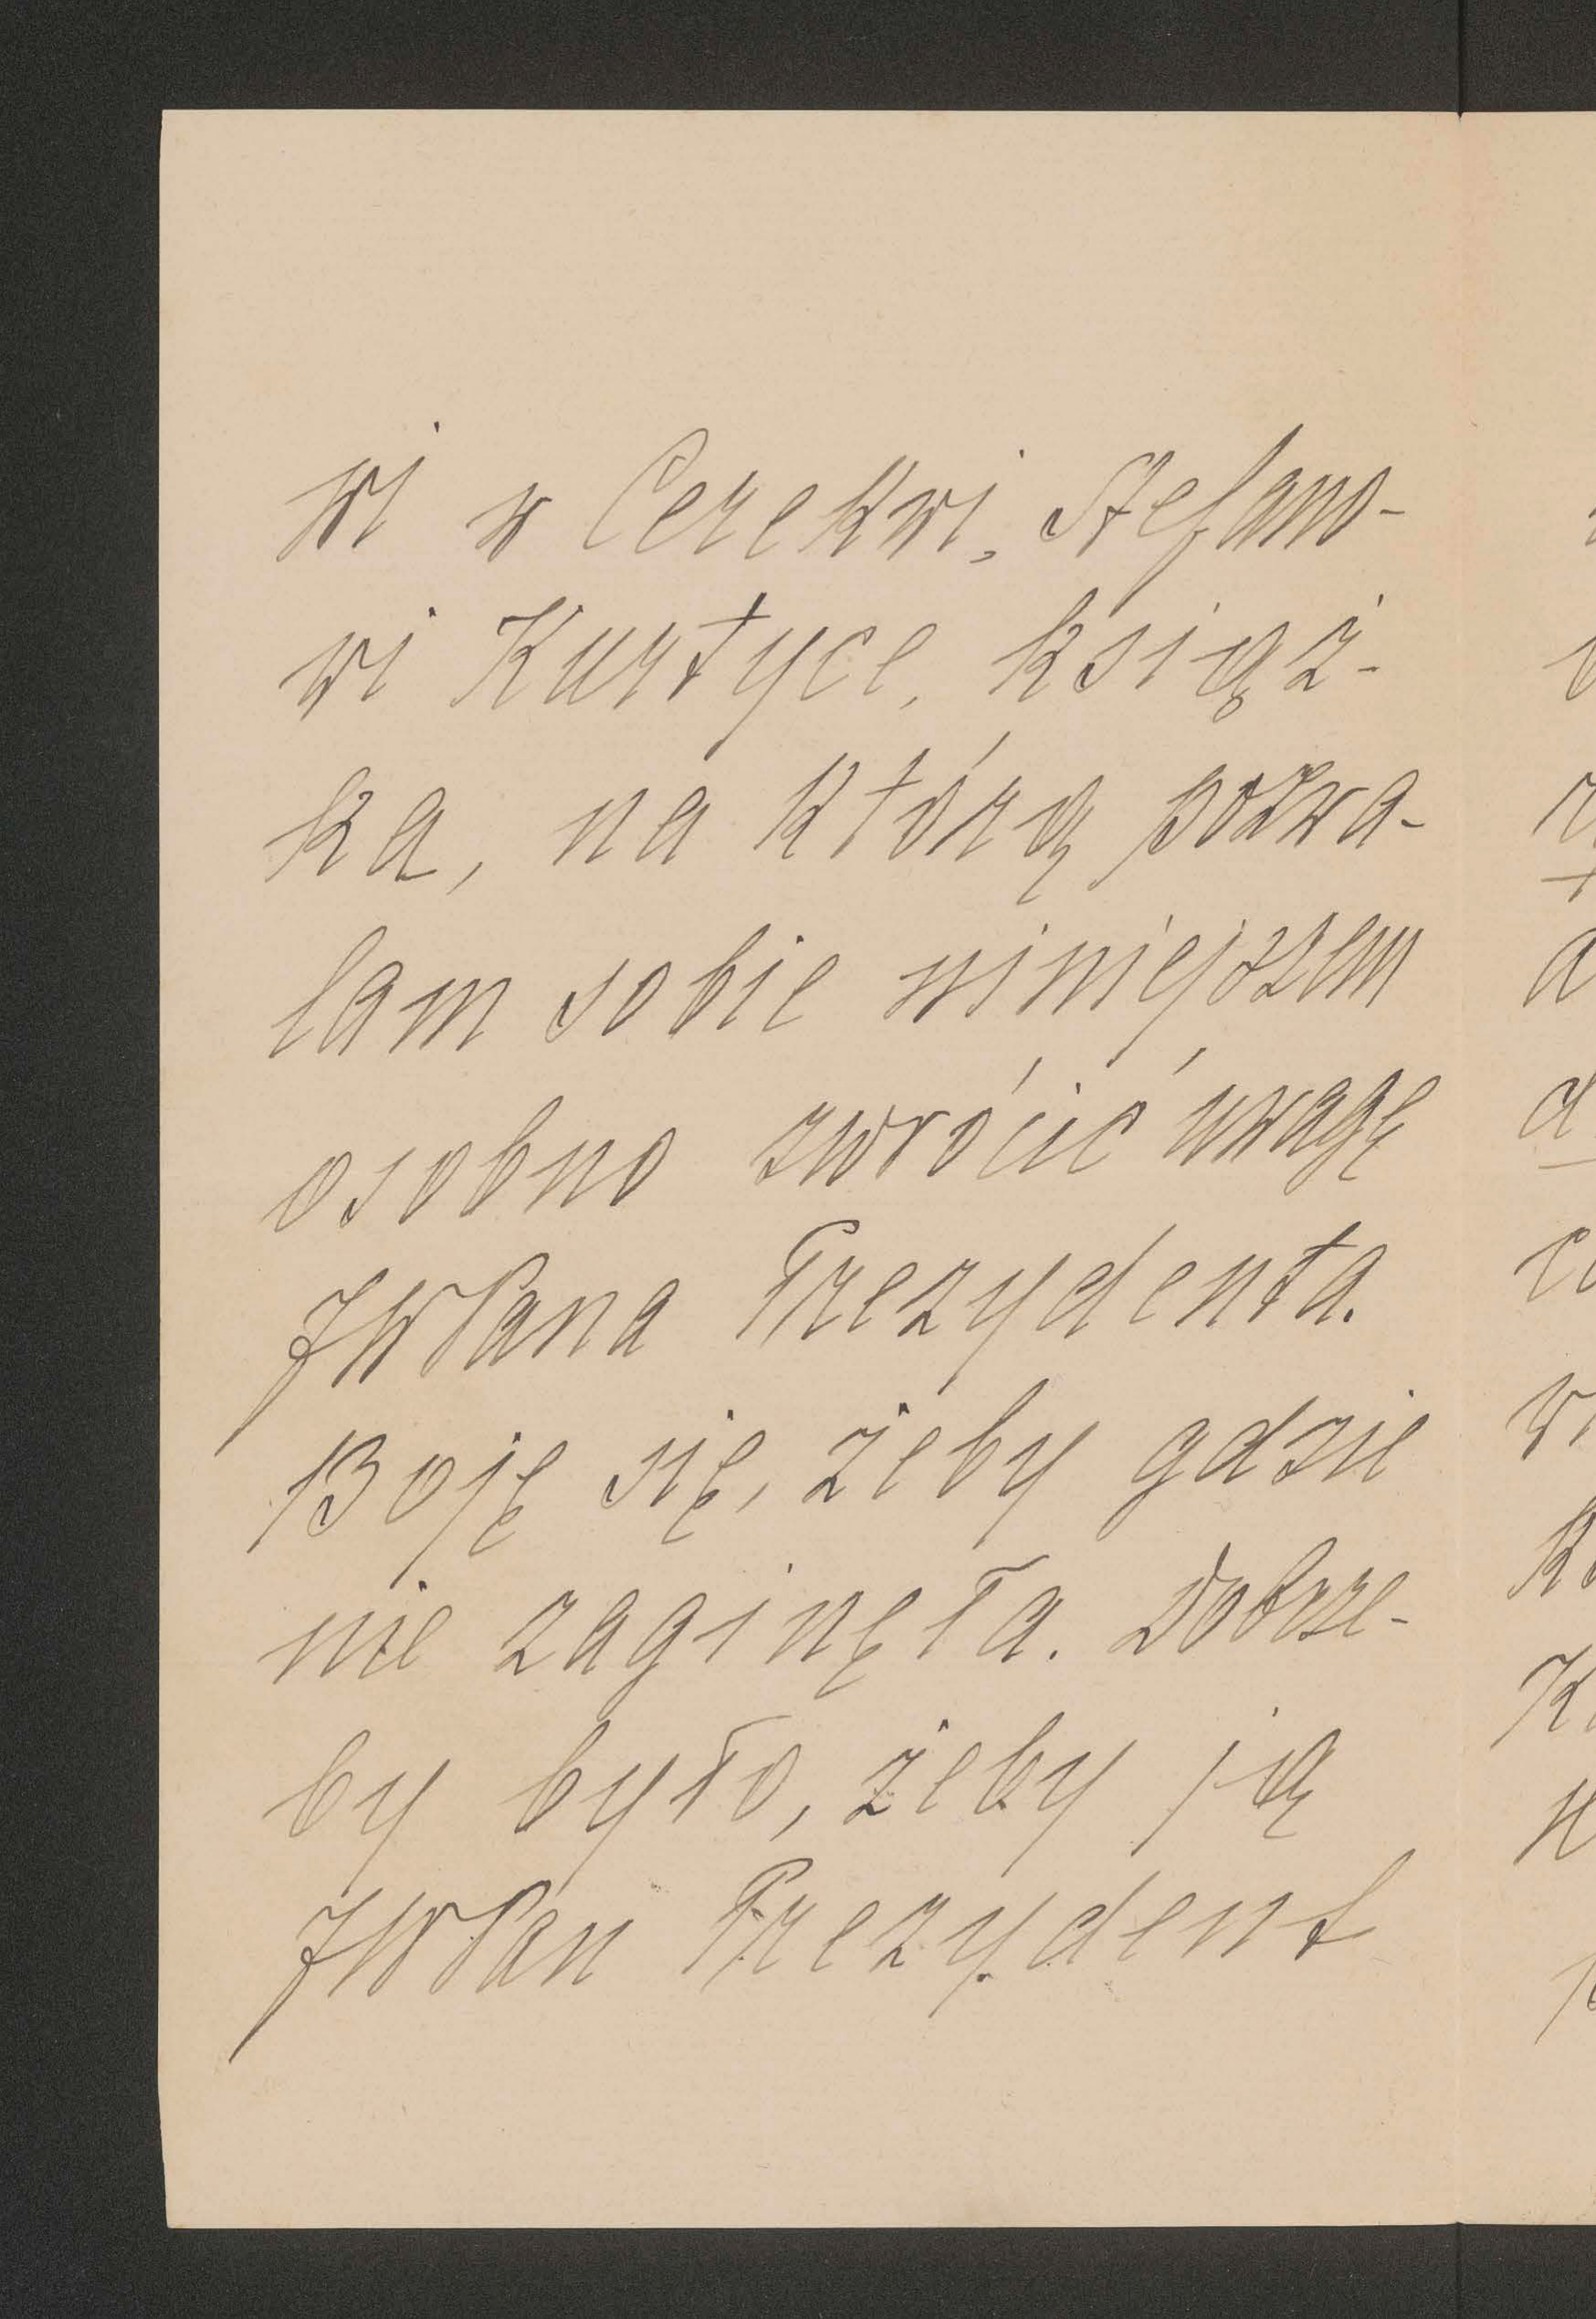 wi w Cerekwi, Stefano-
wi Kurtyce, książ-
ka, na którą pozwa-
lam sobie niniejszem
osobno zwrócić uwagę
JWPana Prezydenta.
Boję się, żeby gdzie
nie zaginęła. Dobrze-
by było, żeby ją
JWPan Prezydent